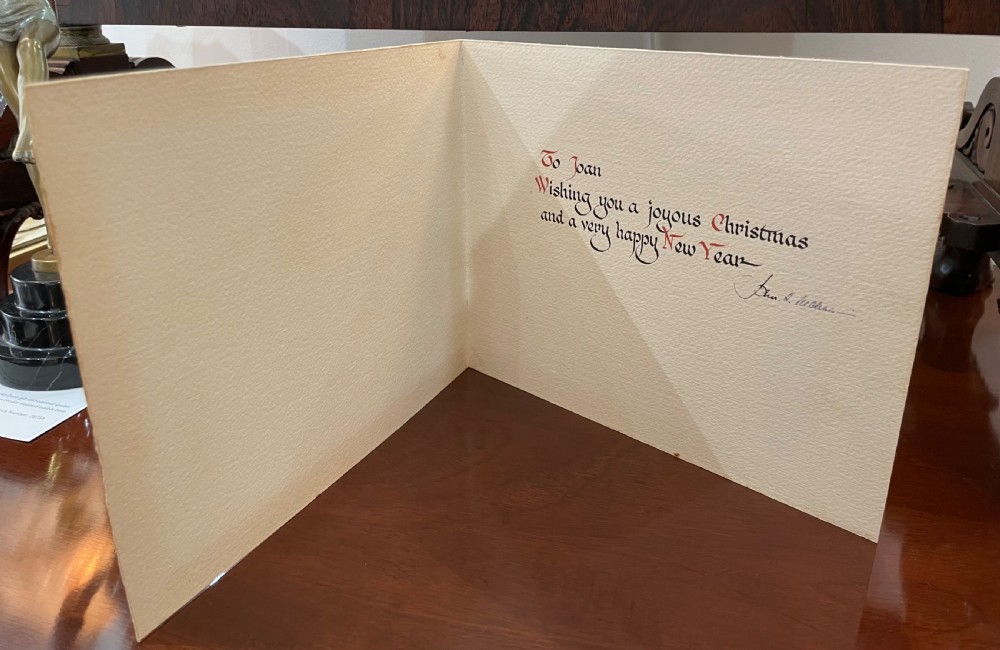 To Joan
Wishing you a joyous Christmas
and a very happy New Year